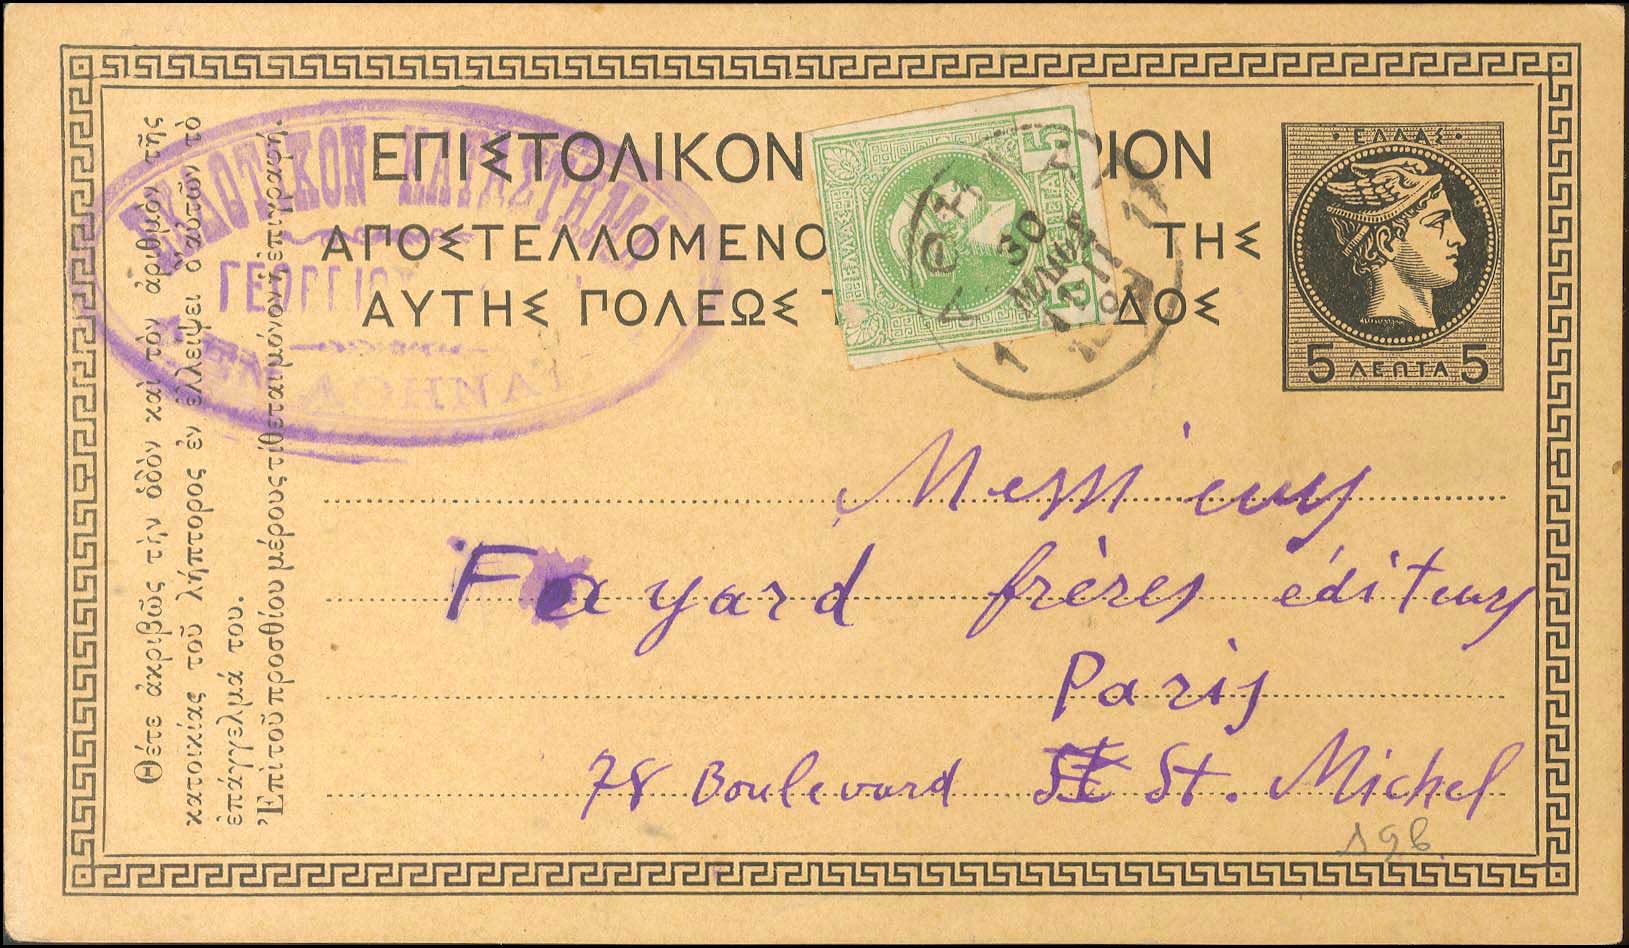 ΕΠΙΣΤΟΛΙΚΟΝ ΡΙΟΝ
ΑΠΟΣΤΕΛΛΟΜΕΝΟ ΤΗΣ
ΑΥΤΗΣ ΠΟΛΕΩΣ ΔΟΣ
ΕΛΛΑΣ
5 ΛΕΠΤΑ 5
5 ΛΕΠΤΑ 5
ΑΘΗΝΑΙ
30
Θέτε ἀκριβῶς τὴν ὁδὸν καὶ τὸν ἀριθμὸν τῆς
κατοικίας τοῦ λήπτορος ἐν ἐλλείψει δ' αὐτῶν τὸ
ἐπάγγελμά του.
Ἐπὶ τοῦ προσθίου μέρους τίθεται μόνον ἡ ἐπιγραφή.
Messieurs
Fayard frères éditeurs
Paris
78 Boulevard St. Michel